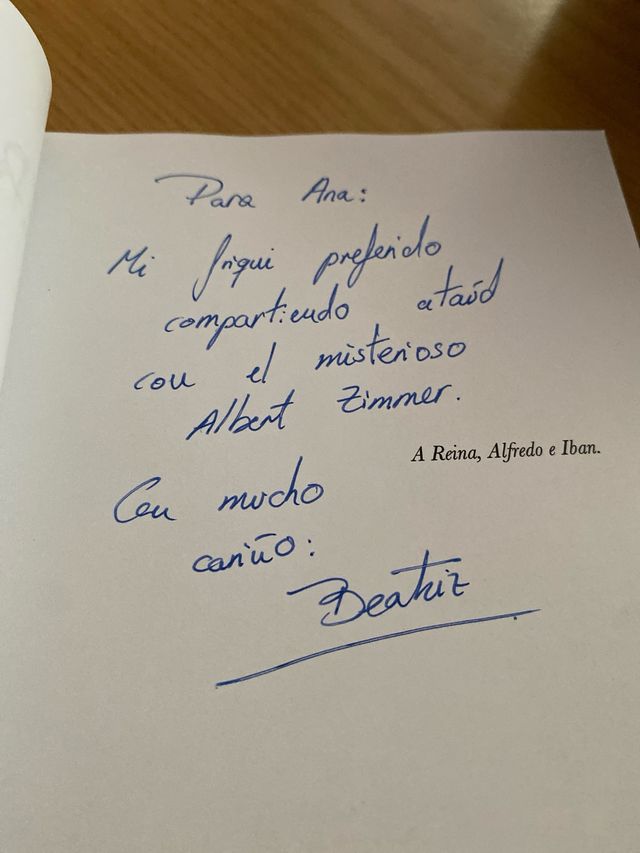 Para Ana:
Mi friqui preferido
compartiendo ataúd
con el misterioso
Albert Zimmer.
A Reina, Alfredo e Iban.
Con mucho
cariño:
Beatriz